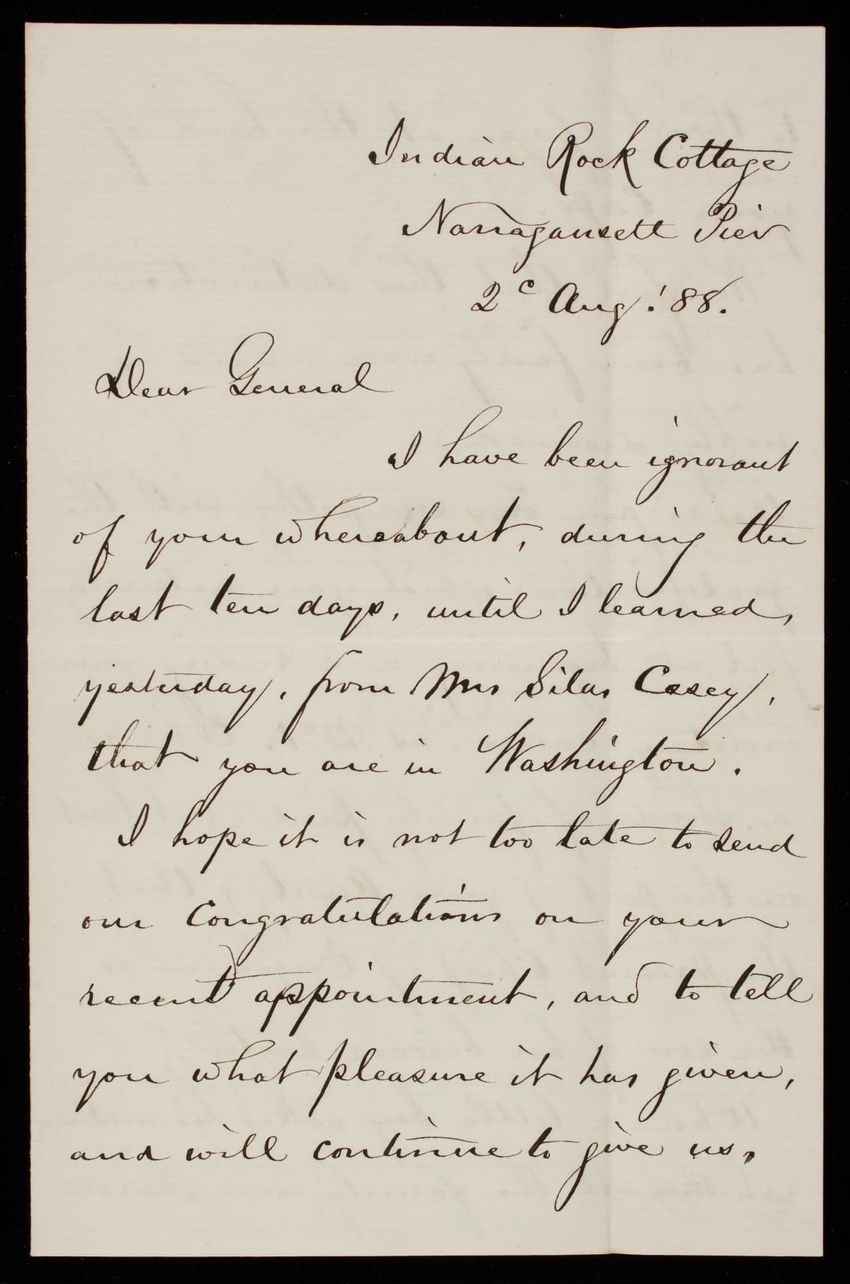 Indian Rock Cottage
Narragansett Pier
2ᶜ Aug! 88.
Dear General
I have been ignorant
of your whereabout, during the
last ten days, until I learned,
yesterday, from Mrs Silas Casey,
that you are in Washington.
I hope it is not too late to send
our congratulations on your
recent appointment, and to tell
you what pleasure it has given,
and will continue to give us,